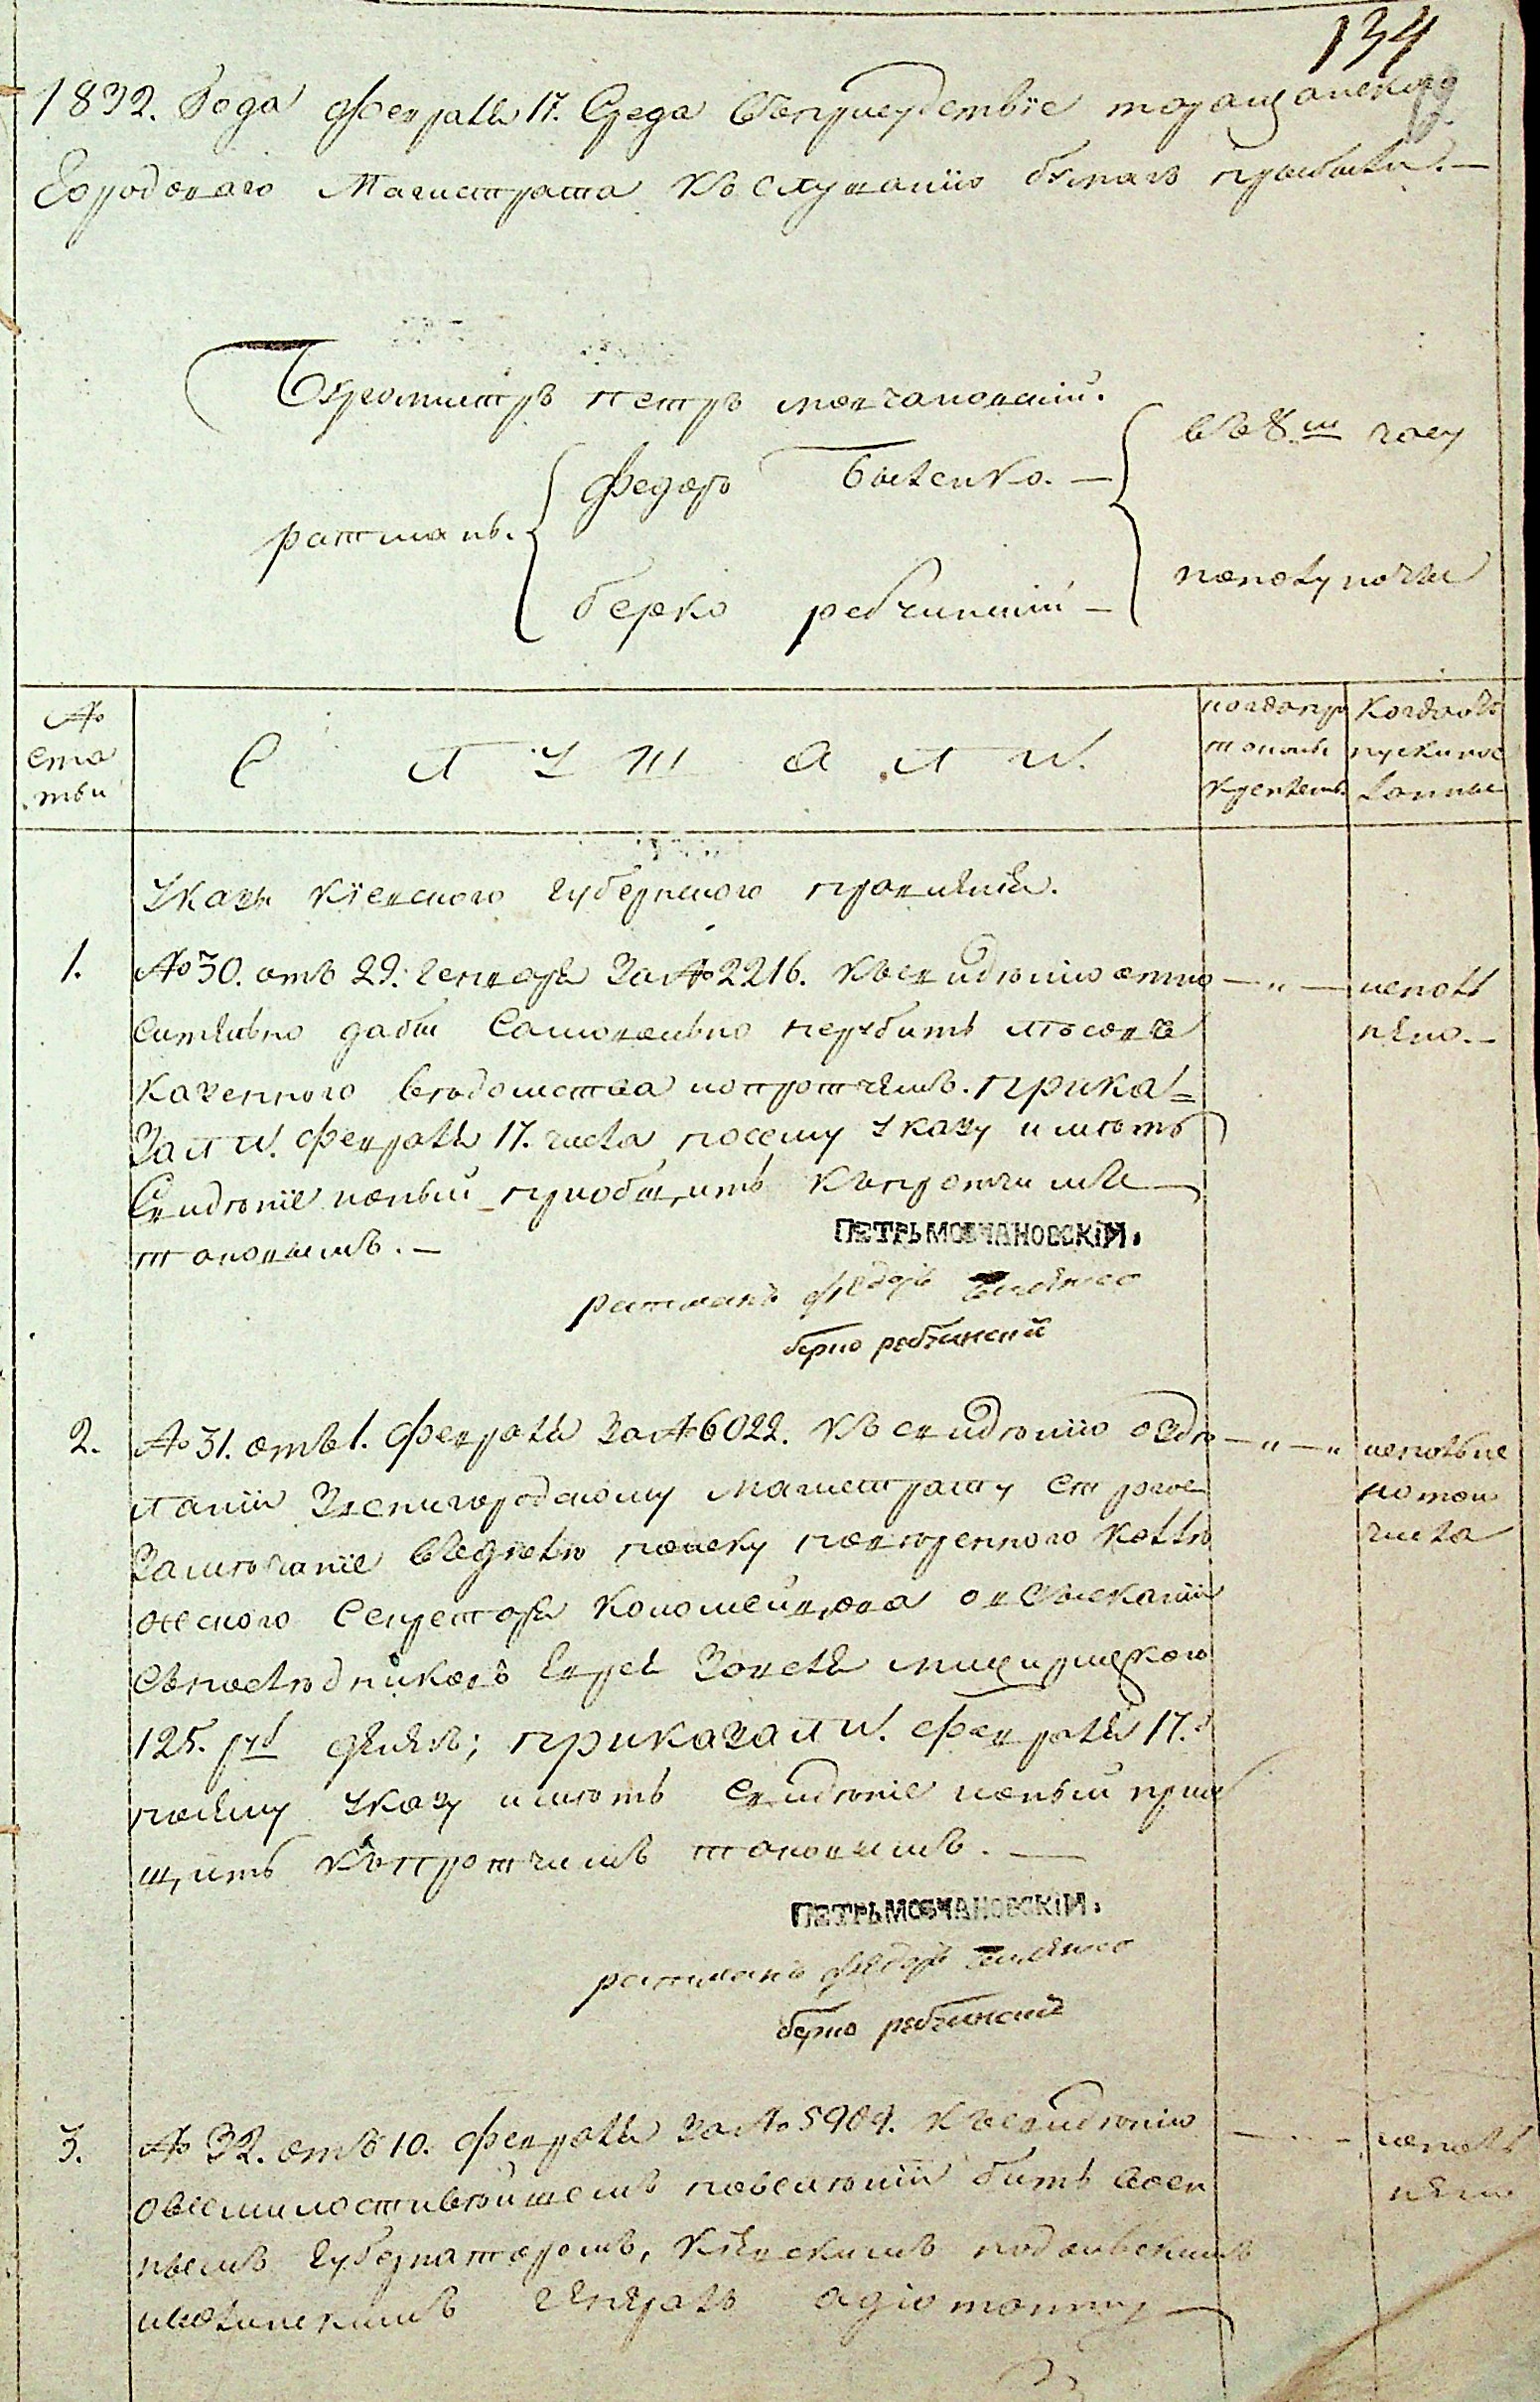 134
1832. Года февраля 17. Среда Въприсудствіе таращанского
Городоваго Магистрата къ слушанію бумагъ прибыли. —
Бургомистръ петръ мовчановскій.
въ 8.м часу
федоръ Быленко. —
ратманъ.
берко рабчинскій —
пополуночи
№ статьи
С Л У Ш А Л И.
когда протоколъ
Когда отпускъ
Указы кіевского губернского правленія.
1. №30. отъ 29. генваря За №2216. Къ свидѣнію относ — „ — исполнено. —
сительно дабы Самовольно нерубить лѣсовъ
казенного вѣдомства и протчемъ. прика=
Зали. февраля 17. числа посему указу имѣть
Свидѣніе коный приобщить къ протчимъ
таковымъ. —
ПЕТРЬ МОВЧАНОВСКІЙ.
ратманъ федоръ Быленко
берко рабчинскій
2. №31. отъ 1. февраля За №6022. Къ свидѣнію о здѣ — „ — „
ланіи Звенигородскому магистрату строгое
Замѣчаніе въ дѣлѣ по иску повѣренного колле
жского Секретаря коломейцова о взысканіи
Съ наслѣдниковъ еврея
125. руб денегъ; приказали. февраля 17.
посему указу имѣть Свидѣніе коный приоб
щить къ протчимъ таковымъ. —
ПЕТРЬ МОВЧАНОВСКІЙ.
ратманъ федоръ Быленко
берко рабчинскій
3. № 32. отъ 10. февраля За №5904. Къ свидѣнію
о всемилостивѣйшемъ повелѣніи быть воен
нымъ губернаторомъ, кіевскимъ подольскимъ
и волынскимъ генералъ адіютанту —